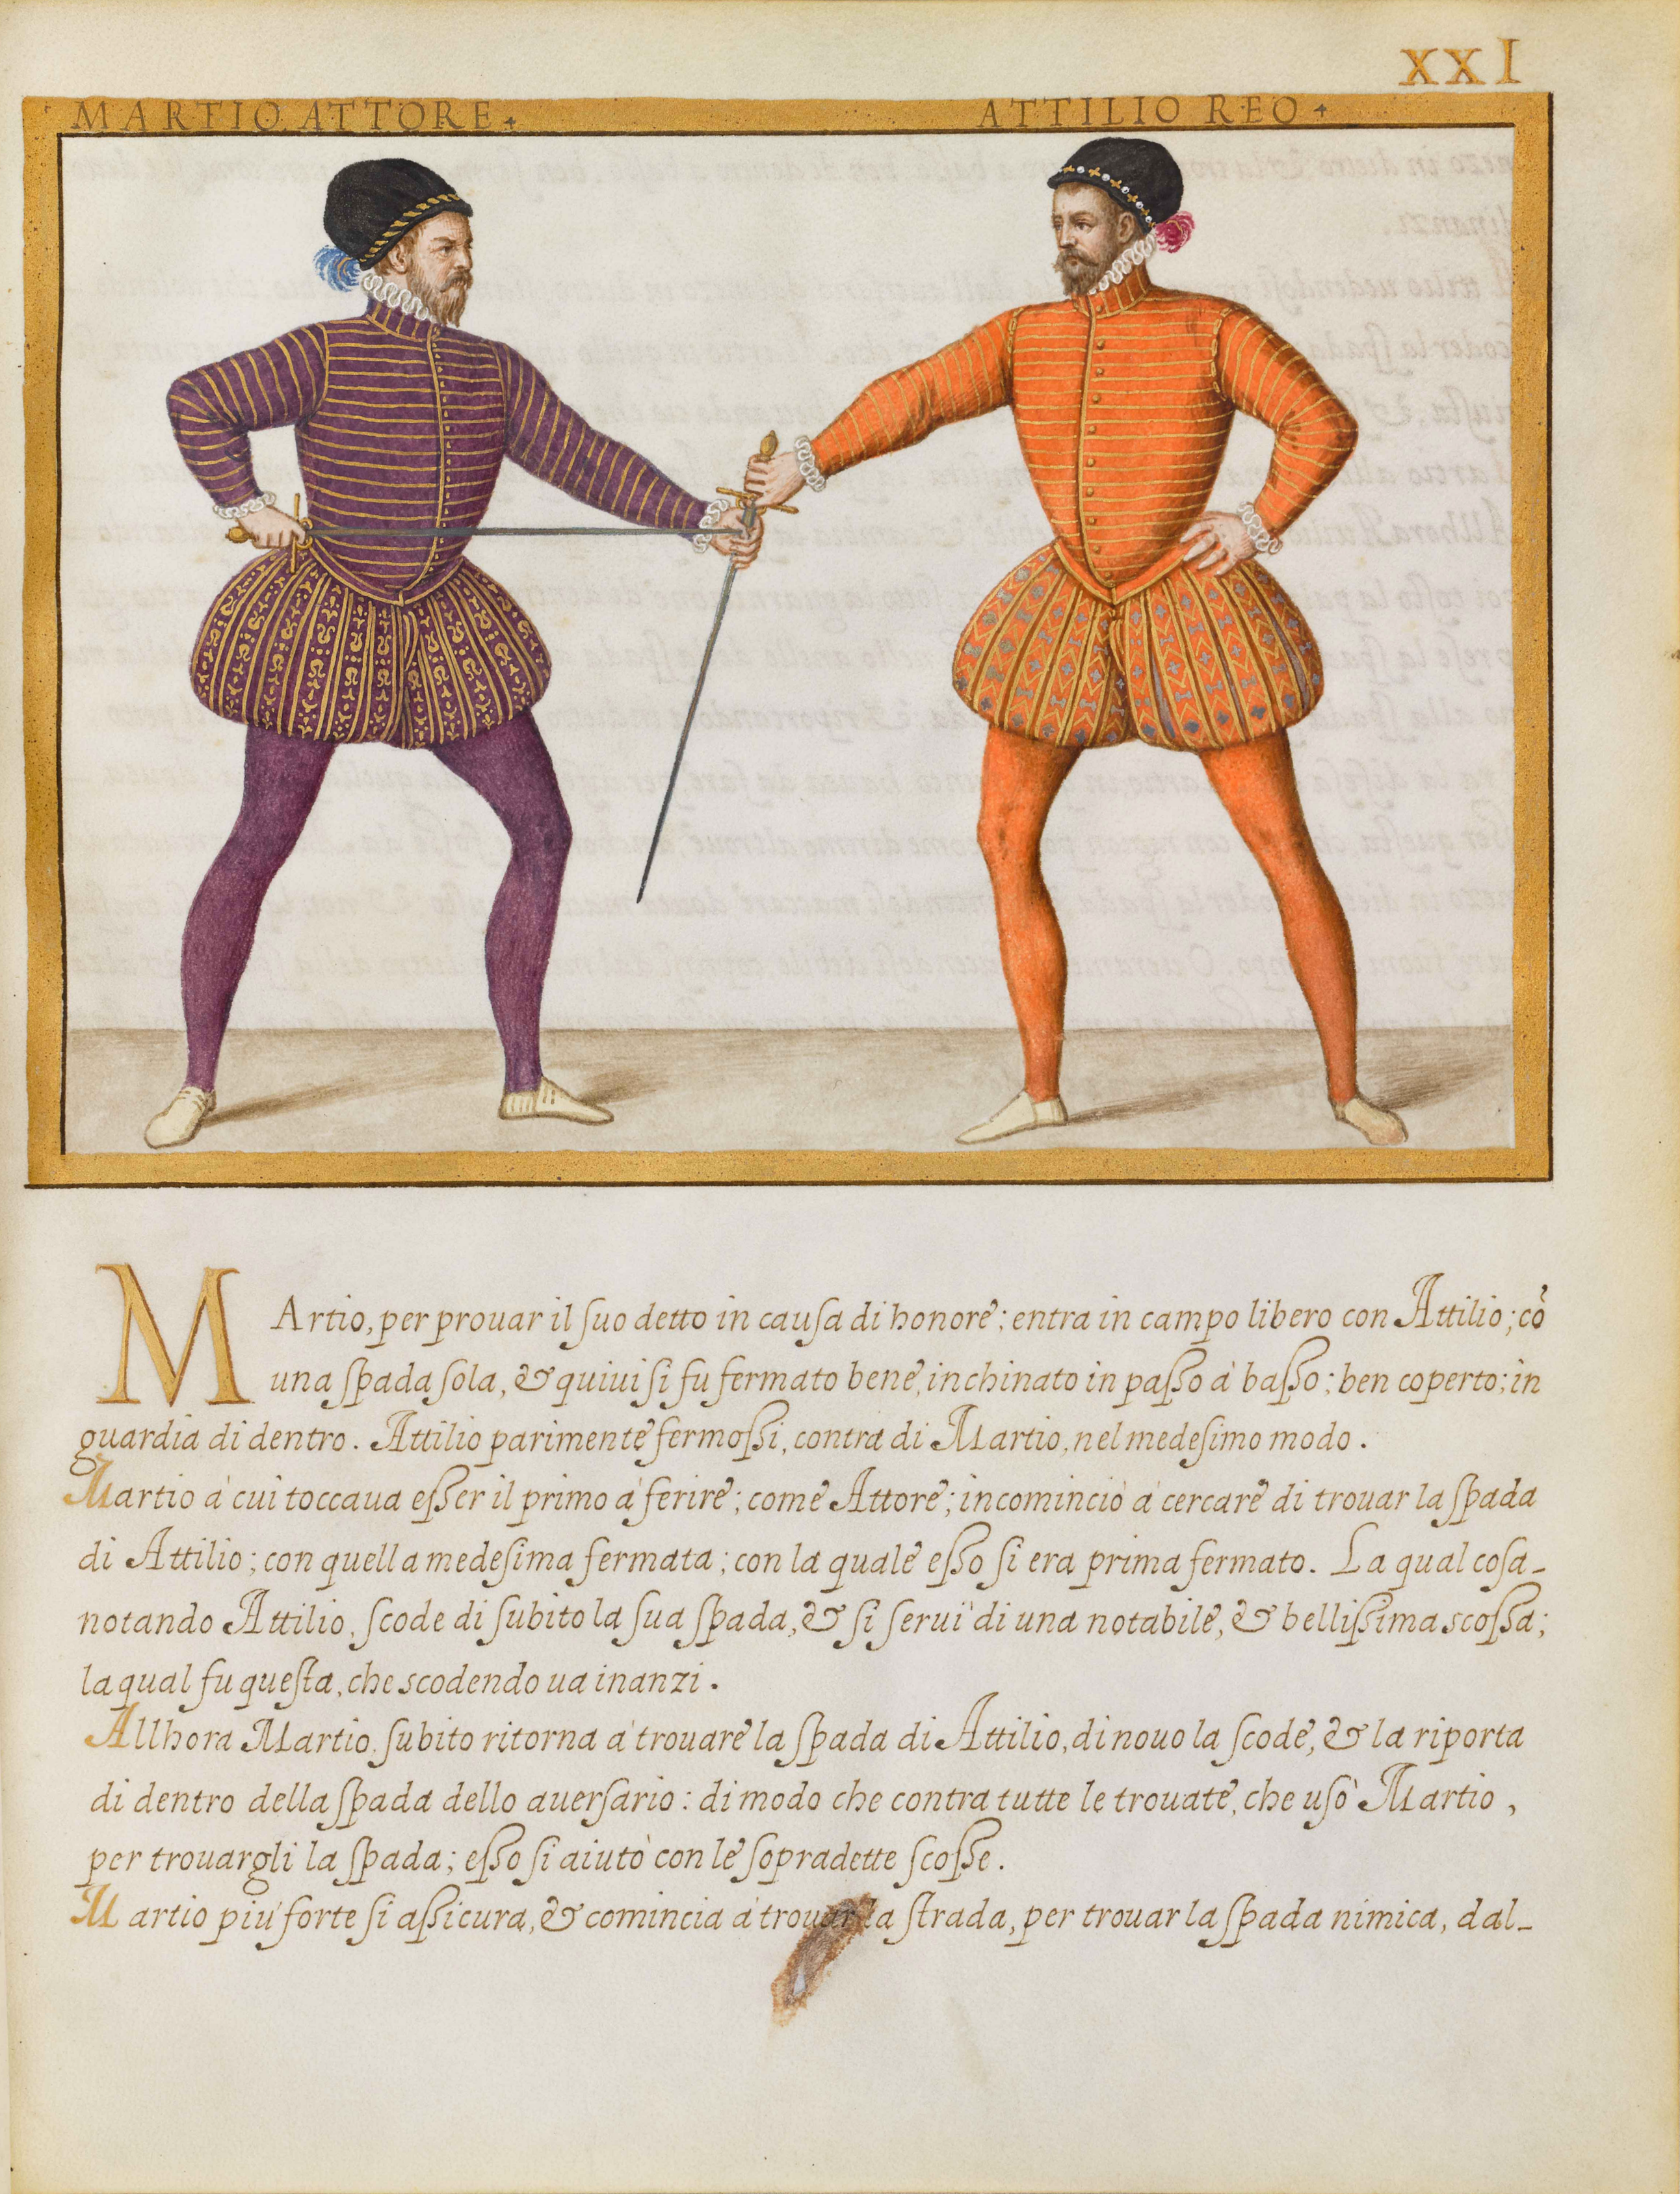 XXI
MARTIO ATTORE
ATTILIO REO
MArtio, per prouar il ſuo detto in cauſa di honore; entra in campo libero con Attilio; cõ
una ſpada ſola, & quiui ſi fu fermato bene, inchinato in paſſo à baſſo; ben coperto; in
guardia di dentro. Attilio parimente fermoſſi, contra di Martio, nel medeſimo modo.
Martio à cui toccaua eſſer il primo à ferire; come Attore; incominciò à cercare di trouar la ſpada
di Attilio; con quella medeſima fermata; con la quale eſſo ſi era prima fermato. La qual coſa
notando Attilio, ſcode di ſubito la ſua ſpada, & ſi ſeruì di una notabile, & belliſſima scoſſa;
la qual fu queſta, che scodendo ua inanzi.
Allhora Martio, ſubito ritorna à trouare la ſpada di Attilio, di nouo la ſcode, & la riporta
di dentro della ſpada dello auerſario: di modo che contra tutte le trouate, che uſò Martio,
per trouargli la ſpada; eſſo ſi aiutò con le ſopradette ſcoſſe.
Martio più forte ſi aſſicura, & comincia à trouar la ſtrada, per trouar la ſpada nimica, dal-